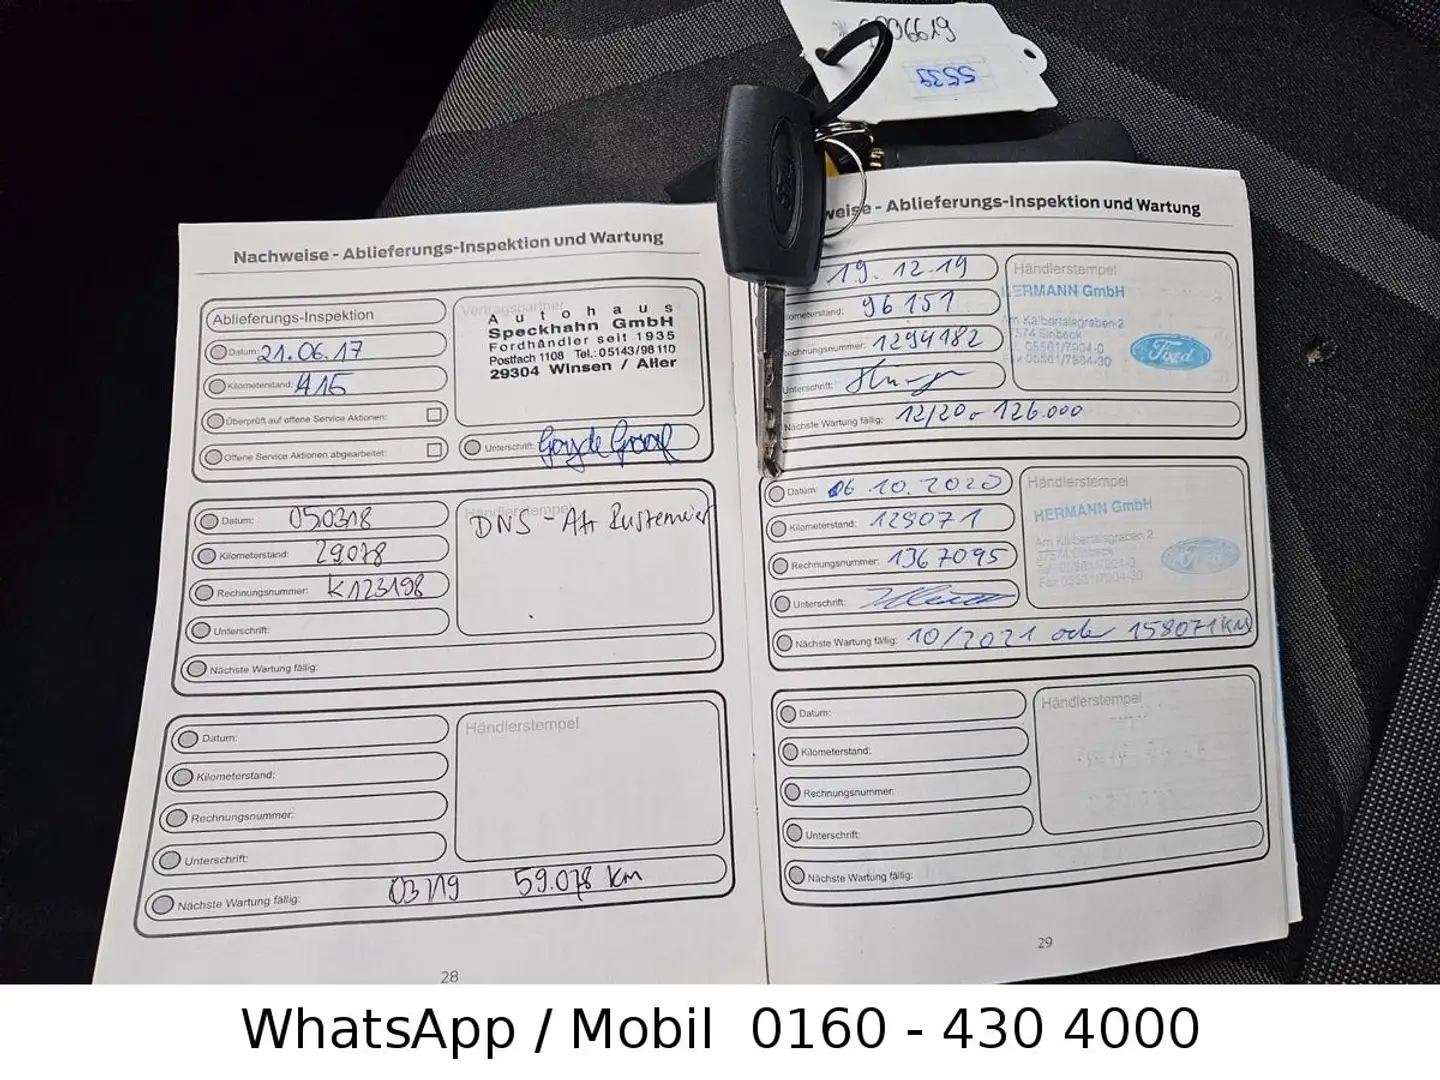 996619
5539
Ford
Nachweise - Ablieferungs-Inspektion und Wartung
Ablieferungs-Inspektion
Datum: 21.06.17
Kilometerstand: 415
Überprüft auf offene Service Aktionen:
Offene Service Aktionen abgearbeitet:
Vertragspartner
Autohaus
Speckhahn GmbH
Fordhändler seit 1935
Postfach 1108 Tel.: 05143/98110
29304 Winsen / Aller
Unterschrift:
Datum: 050318
Kilometerstand: 29078
Rechnungsnummer: K123198
Unterschrift:
Nächste Wartung fällig:
Händlerstempel
DNS - Atr Rustemeier
Datum:
Kilometerstand:
Rechnungsnummer:
Unterschrift:
Nächste Wartung fällig: 03/19 59.078 km
Händlerstempel
28
weise - Ablieferungs-Inspektion und Wartung
19.12.19
ilometerstand: 96151
echnungsnummer: 1294182
Unterschrift:
Nächste Wartung fällig: 12/20 o 126.000
Händlerstempel
HERMANN GmbH
Am Kalbertalsgraben 2
37574 Einbeck
05561/7904-0
Fax 05561/7904-30
Ford
Datum 06.10.2020
Kilometerstand: 129071
Rechnungsnummer: 1367095
Unterschrift:
Nächste Wartung fällig: 10/2021 oder 158071KM
Händlerstempel
HERMANN GmbH
Am Kalbertalsgraben 2
37574 Einbeck
Tel. 05561/7904-0
Fax 05561/7904-30
Ford
Datum:
Kilometerstand:
Rechnungsnummer:
Unterschrift:
Nächste Wartung fällig:
Händlerstempel
29
WhatsApp / Mobil 0160 - 430 4000